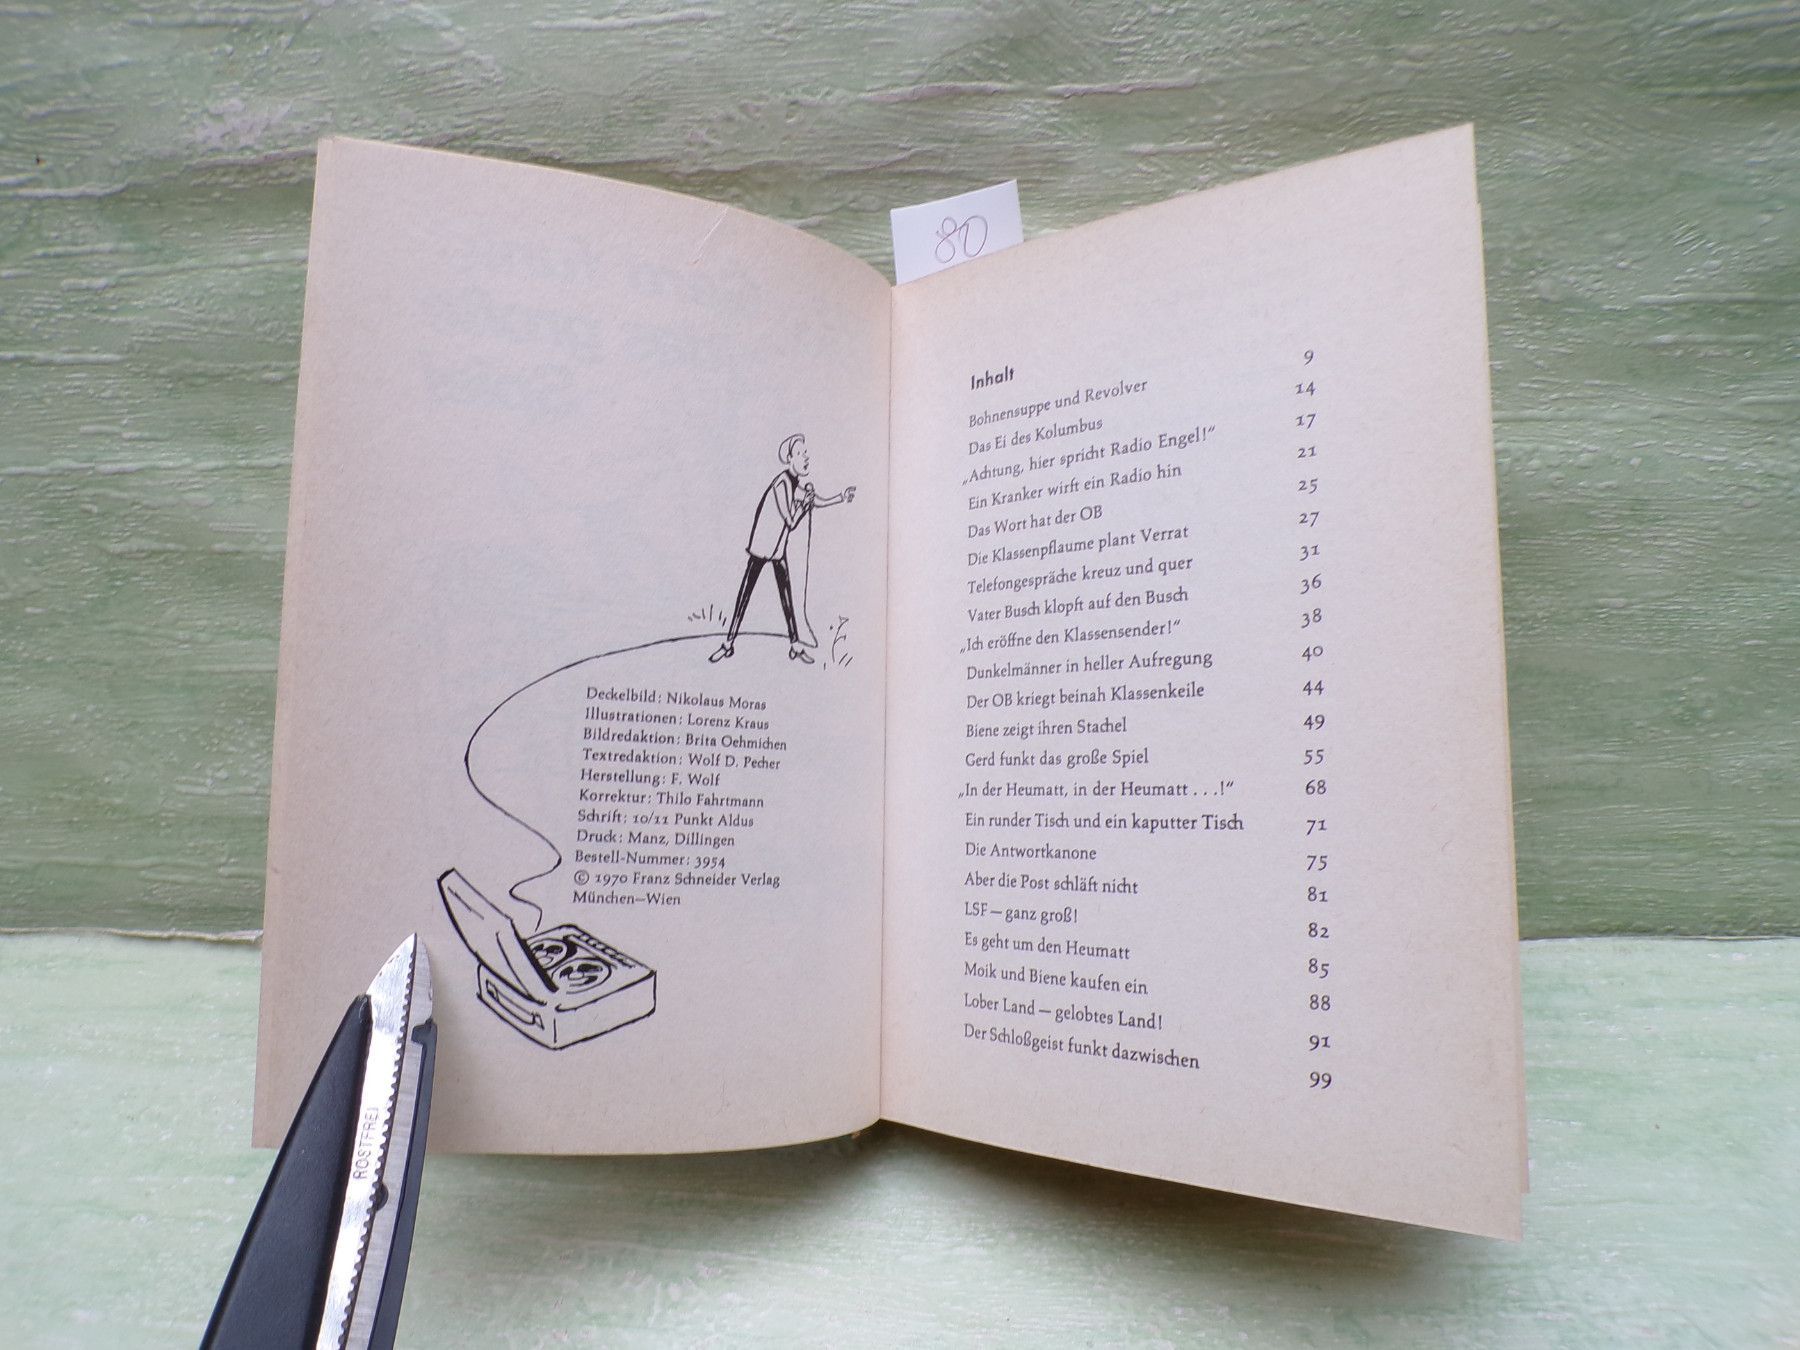 80
Deckelbild: Nikolaus Moras
Illustrationen: Lorenz Kraus
Bildredaktion: Brita Oehmichen
Textredaktion: Wolf D. Pecher
Herstellung: F. Wolf
Korrektur: Thilo Fahrtmann
Schrift: 10/11 Punkt Aldus
Druck: Manz, Dillingen
Bestell-Nummer: 3954
© 1970 Franz Schneider Verlag
München—Wien
ROSTFREI
Inhalt
Bohnensuppe und Revolver 9
Das Ei des Kolumbus 14
„Achtung, hier spricht Radio Engel!“ 17
Ein Kranker wirft ein Radio hin 21
Das Wort hat der OB 25
Die Klassenpflaume plant Verrat 27
Telefongespräche kreuz und quer 31
Vater Busch klopft auf den Busch 36
„Ich eröffne den Klassensender!“ 38
Dunkelmänner in heller Aufregung 40
Der OB kriegt beinah Klassenkeile 44
Biene zeigt ihren Stachel 49
Gerd funkt das große Spiel 55
„In der Heumatt, in der Heumatt . . .!“ 68
Ein runder Tisch und ein kaputter Tisch 71
Die Antwortkanone 75
Aber die Post schläft nicht 81
LSF — ganz groß! 82
Es geht um den Heumatt 85
Moik und Biene kaufen ein 88
Lober Land — gelobtes Land! 91
Der Schloßgeist funkt dazwischen 99